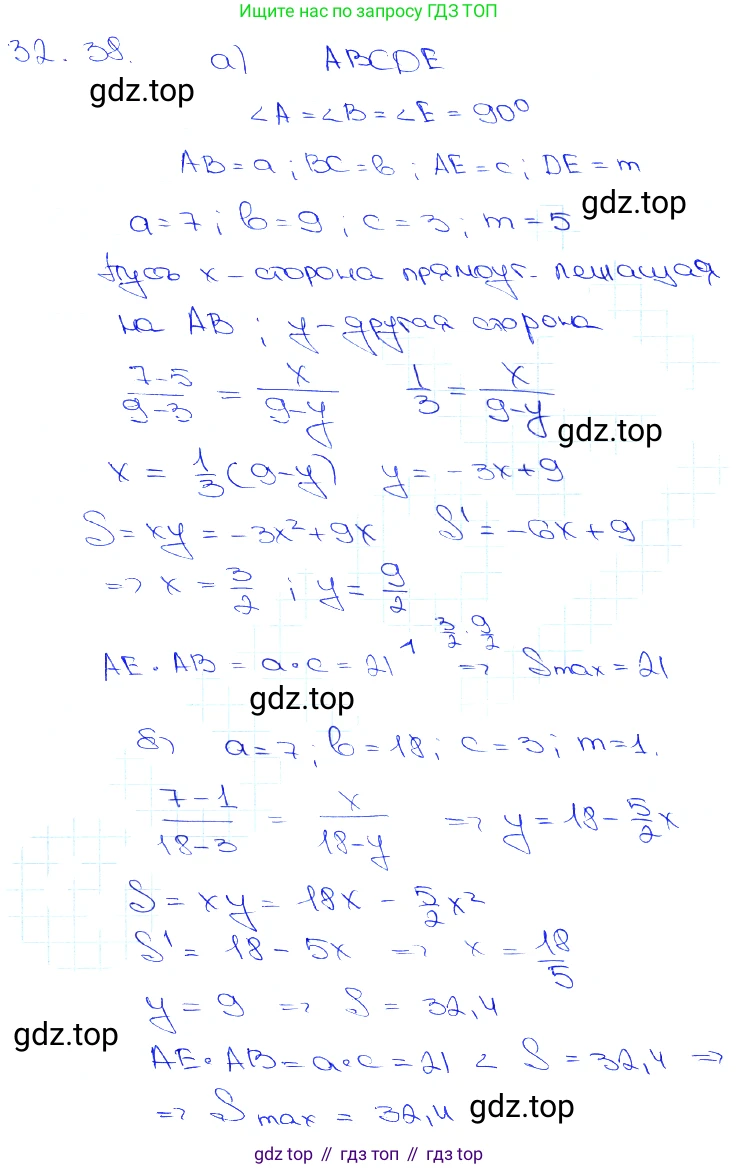 Ищите нас по запросу ГДЗ ТОП
32.38. а) ABCDE
gdz.top
∠A = ∠B = ∠E = 90°
AB = a ; BC = b ; AE = c ; DE = m
gdz.top
a = 7 ; b = 9 ; c = 3 ; m = 5
Пусть x – сторона прямоуг. лежащая
на AB ; y – другая сторона
(7-5)/(9-3) = x/(9-y) 1/3 = x/(9-y)
gdz.top
x = 1/3 (9-y) y = -3x+9
S = xy = -3x²+9x S' = -6x+9
=> x = 3/2 ; y = 9/2
3/2 · 9/2
AE · AB = a·c = 21 => Smax = 21
gdz.top
б) a = 7 ; b = 18 ; c = 3 ; m = 1.
(7-1)/(18-3) = x/(18-y) => y = 18 - 5/2 x
S = xy = 18x - 5/2 x²
S' = 18 - 5x => x = 18/5
y = 9 => S = 32,4
gdz.top
AE·AB = a·c = 21 < S = 32,4 =>
=> Smax = 32,4
gdz.top
gdz top // гдз топ // gdz top